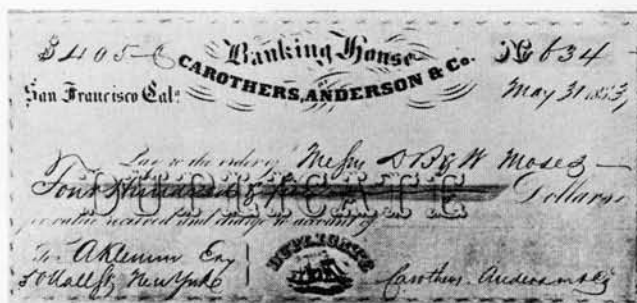 $405- Banking House No 634
CAROTHERS, ANDERSON & Co.
San Francisco Cal. May 31 1853
Pay to the order of Messrs D B & W Moses
Four Hundred & Five Dollars
DUPLICATE
value received and charge to account of
To A Klemm Esq DUPLICATE
50 Wall St New York Carothers Anderson & Co